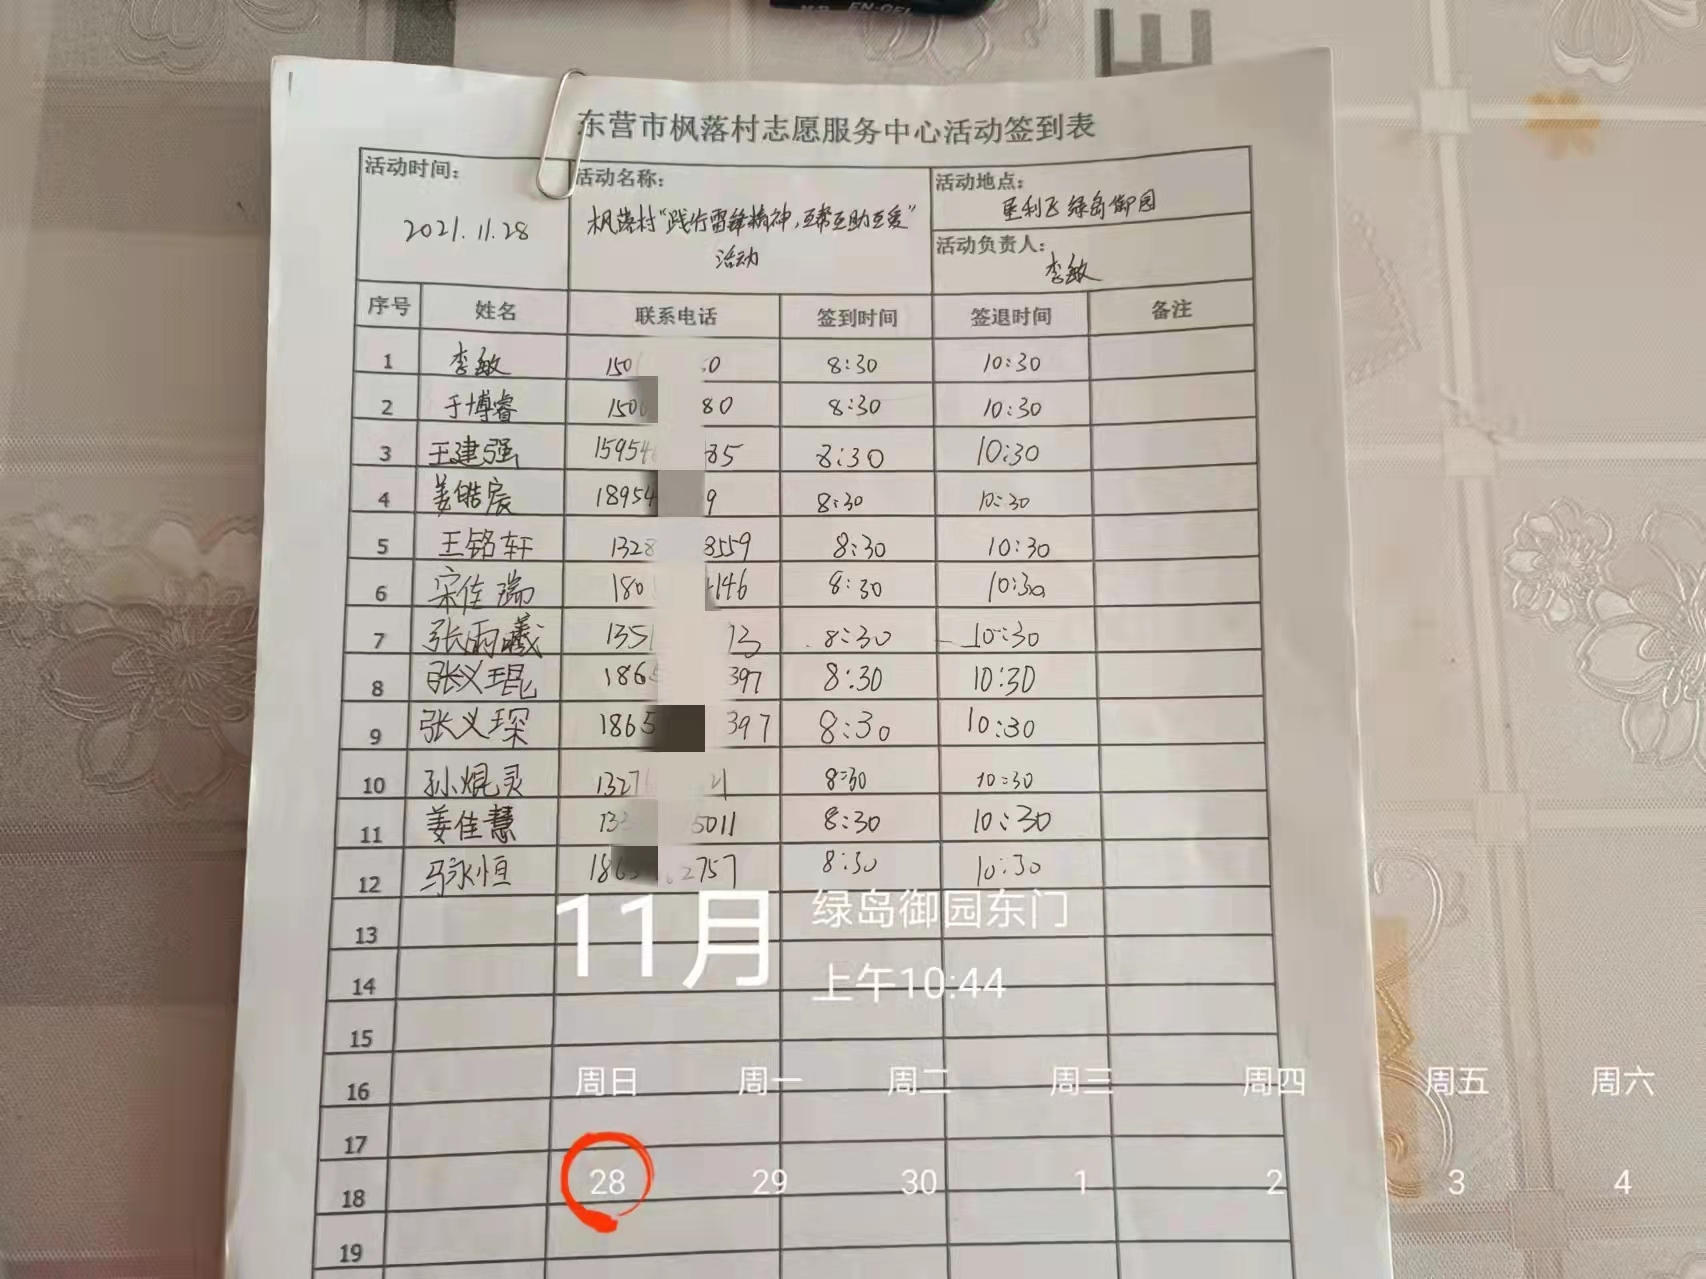 EN-GEL
E
东营市枫落村志愿服务中心活动签到表
活动时间：
2021.11.28
活动名称：
枫落村"践行雷锋精神，互帮互助互爱"
活动
活动地点：
垦利区绿岛御园
活动负责人：
李敏
序号 姓名 联系电话 签到时间 签退时间 备注
1 李敏 150 0 8:30 10:30
2 于博睿 150 80 8:30 10:30
3 王建强 15954 85 8:30 10:30
4 姜皓宸 18954 9 8:30 10:30
5 王铭轩 1328 8559 8:30 10:30
6 宋佳瑞 180 146 8:30 10:30
7 张雨曦 135 13 8:30 10:30
8 张义琨 1865 397 8:30 10:30
9 张义琛 1865 397 8:30 10:30
10 孙焜灵 1327 21 8:30 10:30
11 姜佳慧 13 5011 8:30 10:30
12 马永恒 186 2757 8:30 10:30
13
14
15
16
17
18
19
11月
绿岛御园东门
上午10:44
周日 周一 周二 周三 周四 周五 周六
28 29 30 1 2 3 4